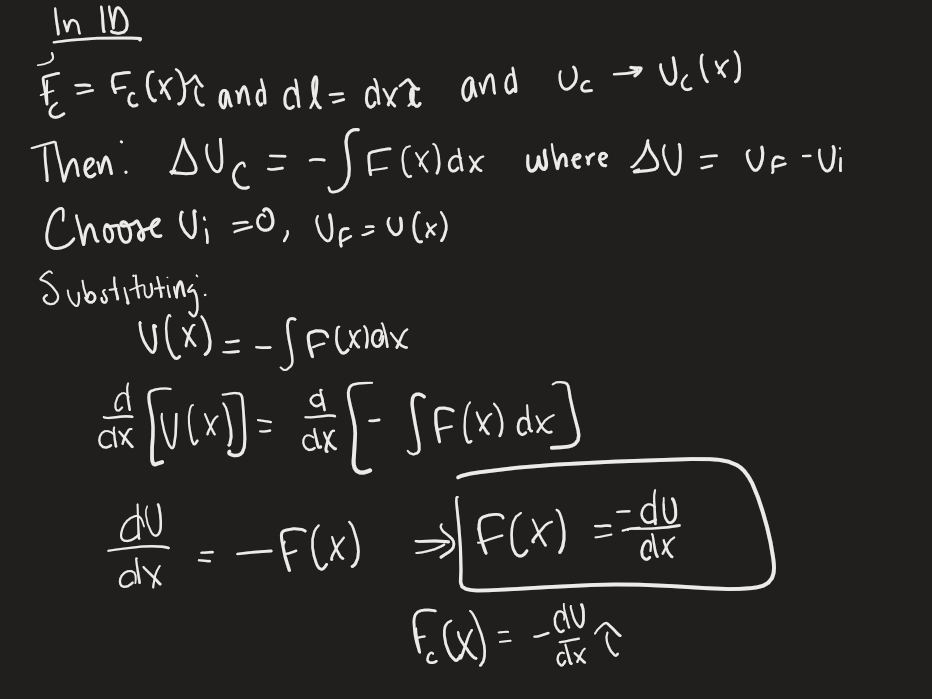 In 1D
F⃗_c = F_c(x)î and dl = dxî and U_c → U_c(x)
Then: ΔU_c = -∫F(x)dx where ΔU = U_F - U_i
Choose U_i = 0, U_F = U(x)
Substituting:
U(x) = -∫F(x)dx
d/dx [U(x)] = d/dx [-∫F(x)dx]
dU/dx = -F(x) ⇒ F(x) = -dU/dx
F_c(x) = -dU/dx î